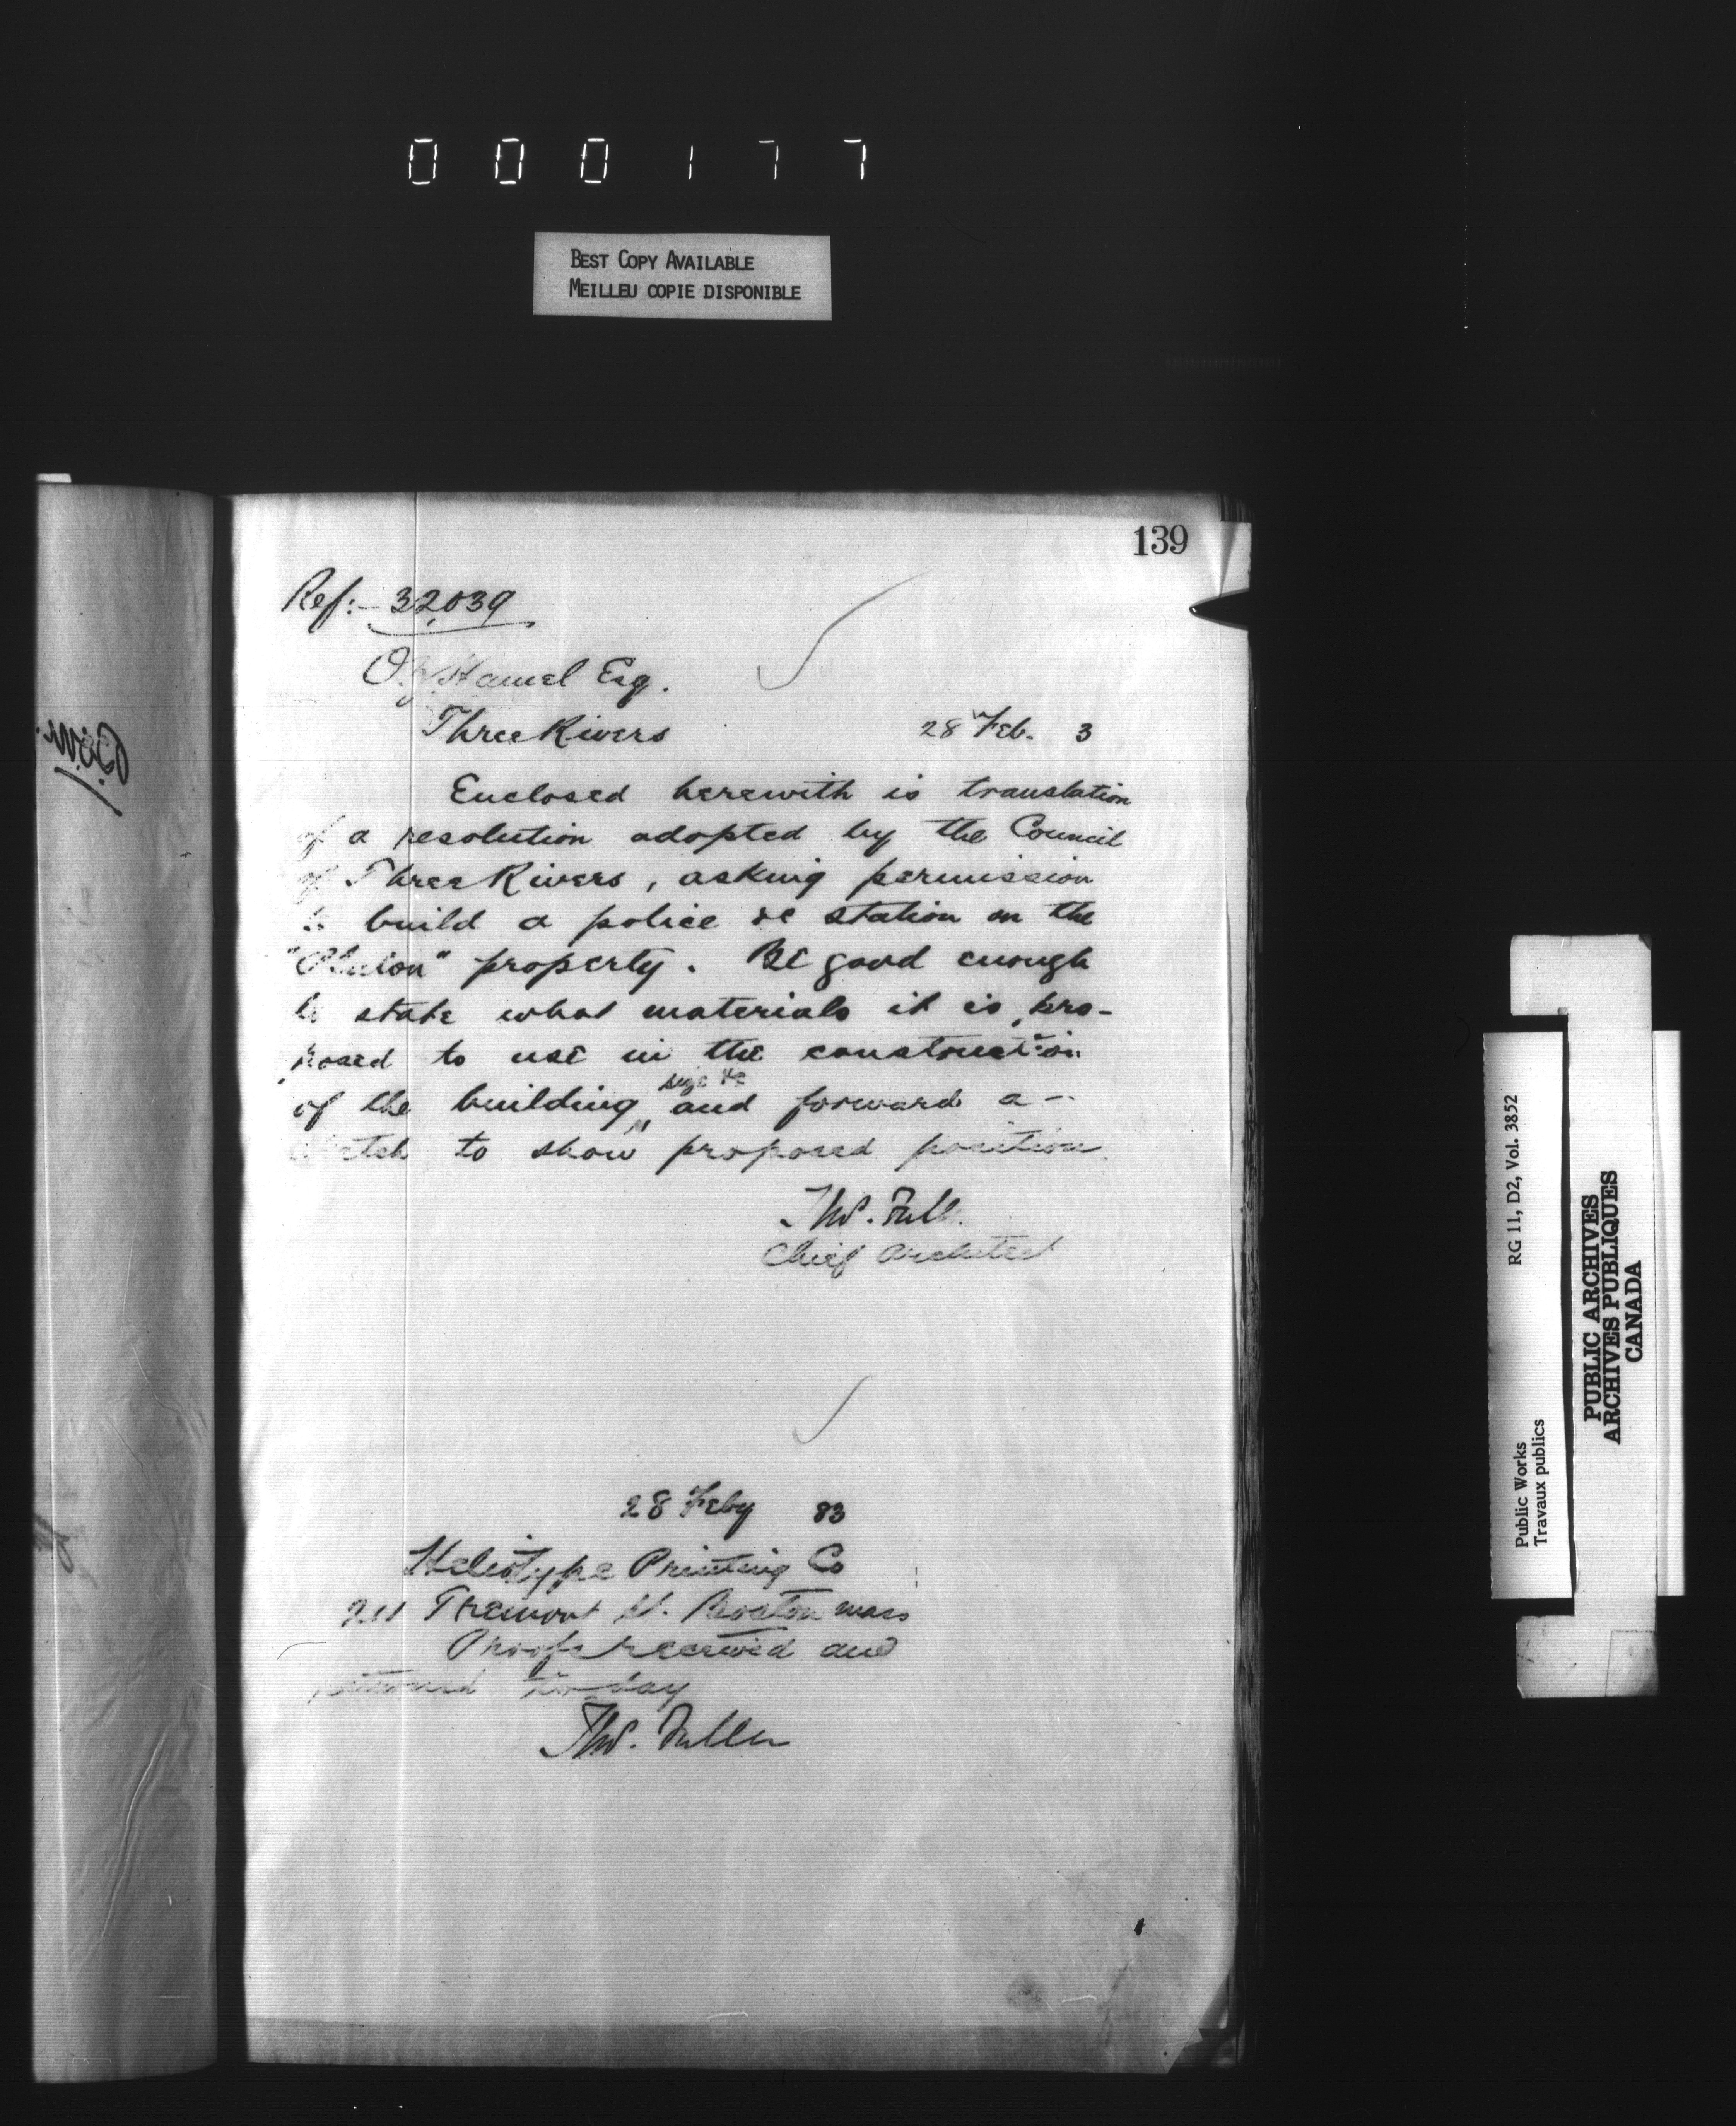 0 0 0 1 7 7
BEST COPY AVAILABLE
MEILLEU COPIE DISPONIBLE
139
Ref:- 32,039
Hamel Esq.
Three Rivers 28 Feb. 3
Enclosed herewith is translation
of a resolution adopted by the Council
of Three Rivers, asking permission
to build a police &c station on the
property. Be good enough
to state what materials it is pro-
posed to use in the construction
size &c
of the building, and forward a -
sketch to show proposed position.
Thos. Full
Chief Architect
28 Feby 83
Heliotype Printing Co
211 Tremont St. Boston Mass
Proofs received and
returned to-day
Thos. Fuller
RG 11, D2, Vol. 3852
Public Works
Travaux publics
PUBLIC ARCHIVES
ARCHIVES PUBLIQUES
CANADA